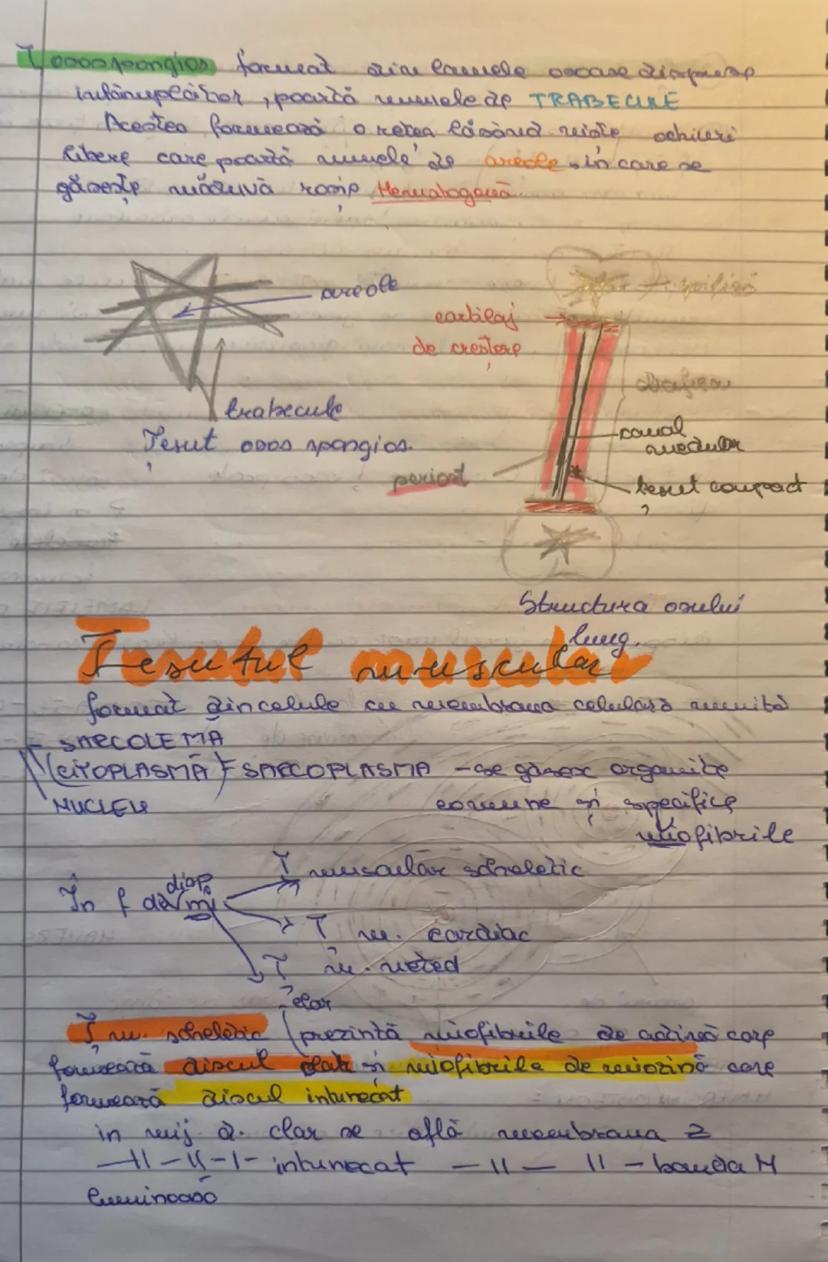 Ț osos spongios format din lamele osoase dispuse
întâmplător, poartă numele de TRABECULE
Acestea formează o rețea lăsând niște ochiuri
libere care poartă numele de areole în care se
găsește măduvă roșie Hematogenă
areole
trabecule
Țesut osos spongios.
cartilaj
de creștere
epifiză
diafiza
canal
medular
periost
țesut compact
Structura osului
lung.
Țesutul muscular
format din celule cu membrana celulară numită
SARCOLEMĂ
CITOPLASMĂ SARCOPLASMA - se găsesc organite
NUCLEU comune și specifice
miofibrile
În f de disp mi
Ț muscular scheletic
Ț m. cardiac
Ț m. neted
clar
Ț m. scheletic prezintă miofibrile de actină care
formează discul și miofibrile de miozină care
formează discul întunecat
în mij d. clar se află membrana Z
—II—II—I- întunecat —II— II — banda H
luminoasă